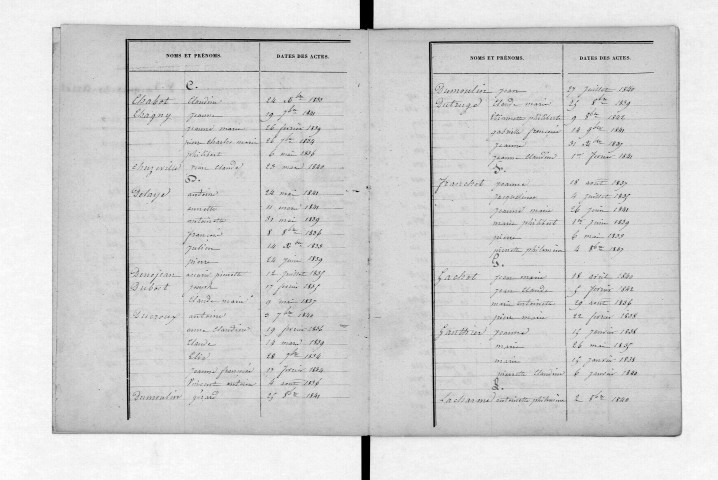 NOMS ET PRÉNOMS. DATES DES ACTES.
C.
Chabot Claudine 24 Xbre
Chagny jeanne 29 7bre 1841
jeanne marie 26 février 1839
pierre Charles marie 26 7bre 1834
philibert 6 mai 1836
jean Claude 23 mai 1840
D.
Delaye antoine 24 mai 1841
annette 11 mars 1841
antoinette 31 mai 1839
françois 8 8bre 1836
julien 14 Xbre 1838
pierre 24 juin 1839
Denojean marie pierrette 12 juillet 1835
Dubost 17 1835
Claude marie 9 mai 1837
Ducroux antoine 3 7bre 1840
anne Claudine 19 février 1836
Claude 14 mars 1839
28 7bre 1834
jeanne françoise 13 février 1834
Vincent antoine 4 août 1836
Dumoulin gérard 25 8bre 1841
NOMS ET PRÉNOMS. DATES DES ACTES.
Dumoulin jean 27 juillet 1840
Dutruge Claude marie 25 8bre 1839
Etiennette philiberte 9 8bre 1842
gabrielle françoise 14 9bre 1841
jeanne 31 Xbre 1837
jeanne Claudine 1er février 1841
F.
Franchot jeanne 18 août 1837
4 juillet 1835
jeanne marie 26 juin 1841
marie philibert 1er juin 1839
pierre 6 mai 1835
pierrette philomène 2 8bre 1837
G.
Gachot jean marie 18 avril 1840
jean Claude 5 février 1842
marie antoinette 29 août 1836
pierre marie 22 février 1838
Gauthier jeanne 15 janvier 1838
marie 26 mai 1835
marie 15 janvier 1838
pierrette Claudine 6 janvier 1840
L.
Lacharme antoinette philomène 2 8bre 1840